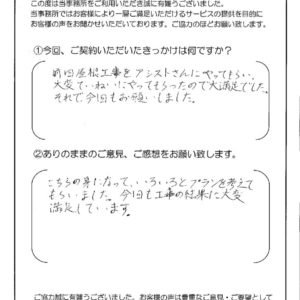 この度は当事務所をご利用いただき誠に有難うございました。
当事務所ではお客様により一層ご満足いただけるサービスの提供を目的に
お客様の声をお聞かせいただいております。ご協力のほどお願い致します。
①今回、ご契約いただいたきっかけは何ですか？
前回屋根工事をアシストさんにやってもらい、
大変ていねいにやってもらったので大満足でした。
それで今回もお願いしました。
②ありのままのご意見、ご感想をお願い致します。
こちらの身になって、いろいろとプランを考えて
もらいました。今回も工事の結果に大変
満足しています。
ご協力誠に有難うございました。お客様の声は貴重なご意見・ご要望として